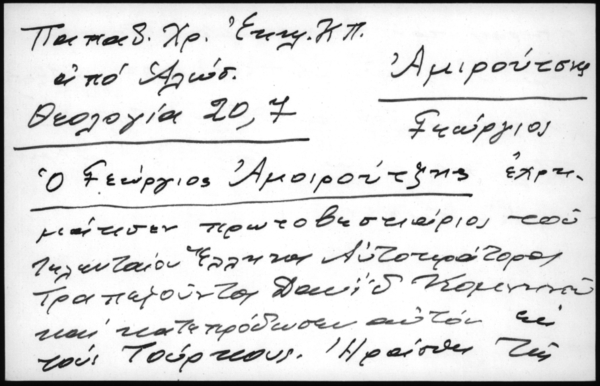 Παπαδ. Χρ. Ἐκκλ. ΚΠ.
ἀπό Ἁλώσ.
Ἀμιρούτσης
Θεολογία 20, 7
Γεώργιος
Ὁ Γεώργιος Ἀμοιρούτζης ἐχρη-
μάτισεν πρωτοβεστιάριος τοῦ
τελευταίου Ἕλληνος Αὐτοκράτορος
Τραπεζοῦντος Δαυΐδ Κομνηνοῦ
καί κατεπρόδωσεν αὐτόν εἰ
τούς Τούρκους. Ἠράσθη τῆς